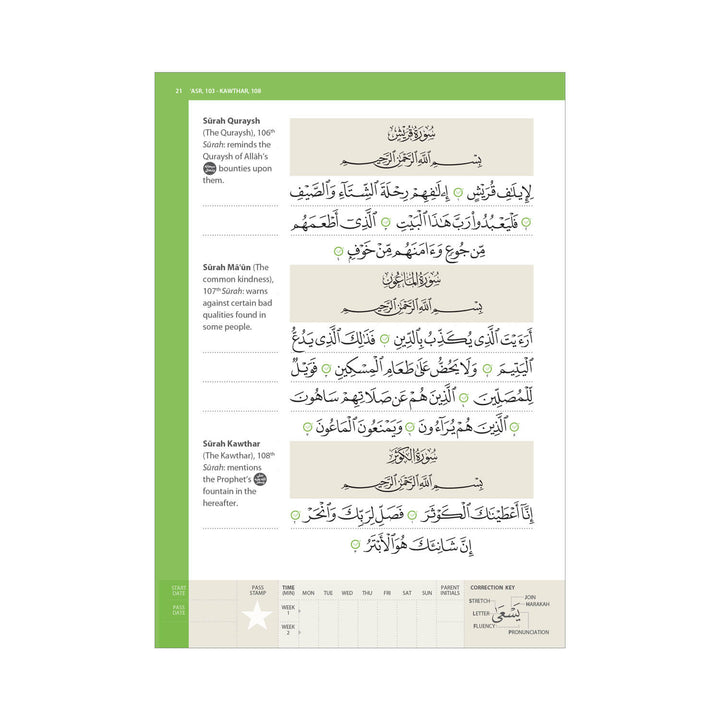 21 'ASR, 103 - KAWTHAR, 108
Sūrah Quraysh
(The Quraysh), 106th
Sūrah: reminds the
Quraysh of Allāh's
bounties upon
them.
سُورَةُ قُرَيْشٍ
بِسْمِ اللَّهِ الرَّحْمَٰنِ الرَّحِيمِ
لِإِيلَٰفِ قُرَيْشٍ ۝ إِۦلَٰفِهِمْ رِحْلَةَ ٱلشِّتَآءِ وَٱلصَّيْفِ
۝ فَلْيَعْبُدُوا۟ رَبَّ هَٰذَا ٱلْبَيْتِ ۝ ٱلَّذِىٓ أَطْعَمَهُم
مِّن جُوعٍ وَءَامَنَهُم مِّنْ خَوْفٍۭ ۝
Sūrah Mā'ūn (The
common kindness),
107th Sūrah: warns
against certain bad
qualities found in
some people.
سُورَةُ المَاعُونِ
بِسْمِ اللَّهِ الرَّحْمَٰنِ الرَّحِيمِ
أَرَءَيْتَ ٱلَّذِى يُكَذِّبُ بِٱلدِّينِ ۝ فَذَٰلِكَ ٱلَّذِى يَدُعُّ
ٱلْيَتِيمَ ۝ وَلَا يَحُضُّ عَلَىٰ طَعَامِ ٱلْمِسْكِينِ ۝ فَوَيْلٌ
لِّلْمُصَلِّينَ ۝ ٱلَّذِينَ هُمْ عَن صَلَاتِهِمْ سَاهُونَ
۝ ٱلَّذِينَ هُمْ يُرَآءُونَ ۝ وَيَمْنَعُونَ ٱلْمَاعُونَ ۝
Sūrah Kawthar
(The Kawthar), 108th
Sūrah: mentions
the Prophet's
fountain in the
hereafter.
سُورَةُ الكَوْثَرِ
بِسْمِ اللَّهِ الرَّحْمَٰنِ الرَّحِيمِ
إِنَّآ أَعْطَيْنَٰكَ ٱلْكَوْثَرَ ۝ فَصَلِّ لِرَبِّكَ وَٱنْحَرْ ۝
إِنَّ شَانِئَكَ هُوَ ٱلْأَبْتَرُ ۝
START DATE
PASS DATE
PASS STAMP
TIME (MIN) MON TUE WED THU FRI SAT SUN PARENT INITIALS
WEEK 1
WEEK 2
CORRECTION KEY
STRETCH
JOIN
HARAKAH
LETTER
يَسْعَىٰ
FLUENCY
PRONUNCIATION